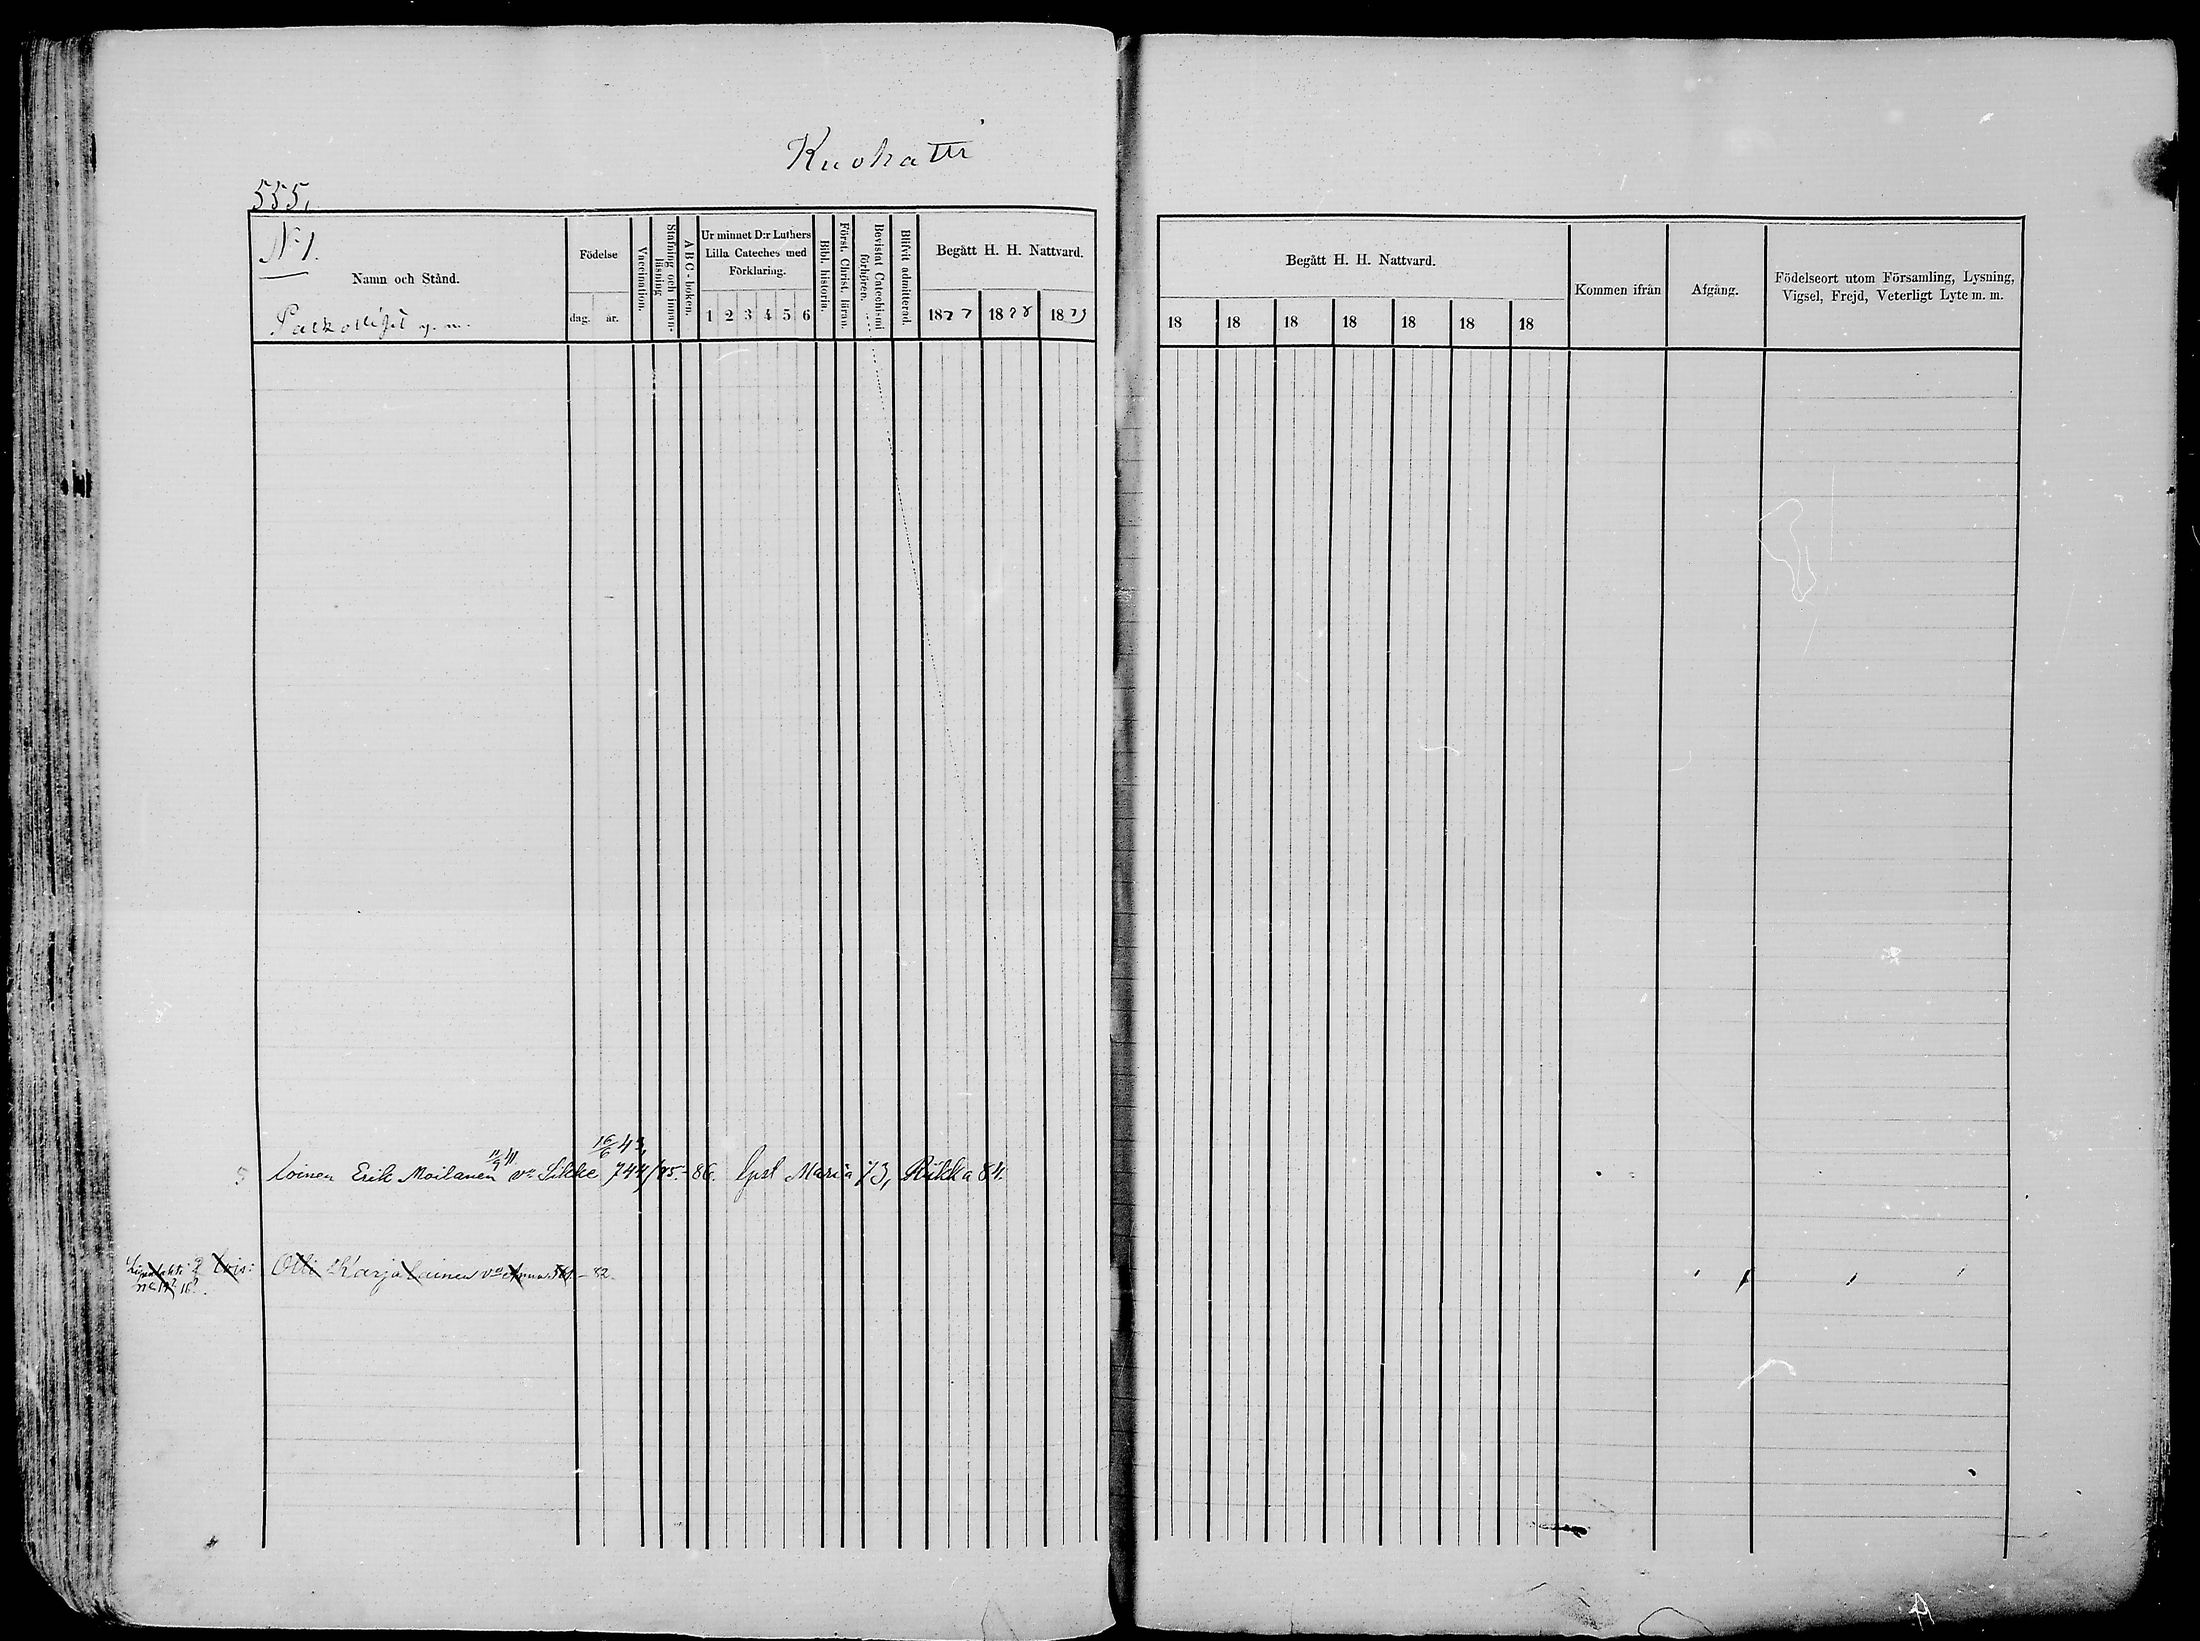 Kuohatti
555,
N:o 1.
Namn och Stånd.
Palkolliset y. m.
Födelse
dag. år.
Vaccination.
Stafning och innan-läsning
ABC-boken.
Ur minnet D:r Luthers Lilla Cateches med Förklaring.
1 2 3 4 5 6
Bibl. historia.
Först. Christ. läran.
Bevistat Catechismi förhören.
Blifvit admitterad.
Begått H. H. Nattvard.
1877 1878 1879
Begått H. H. Nattvard.
18 18 18 18 18 18 18
Kommen ifrån
Afgång.
Födelseort utom Församling, Lysning, Vigsel, Frejd, Veterligt Lyte m. m.
16/6 43,
Loinen Erik Moilanen 11/9 41 vo Sikke 744/75.-86. Maria 73, Riikka 84.
Lois: Otti Karjalainen vo Anna 561.-82.